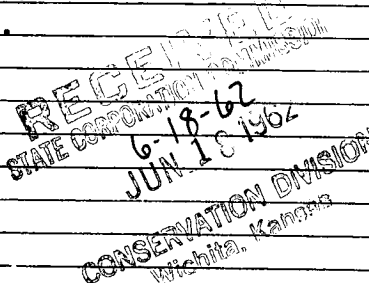 RECEIVED
STATE CORPORATION COMMISSION
6-18-62
JUN 18 1962
CONSERVATION DIVISION
Wichita, Kansas